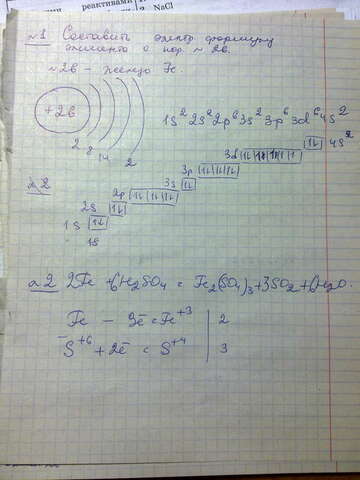 реактивами
2 NaCl
№1 Составить электр формулу
элемента с пор. № 26.
№26 – железо Fe.
+26
2 8 14 2
1s² 2s² 2p⁶ 3s² 3p⁶ 3d⁶ 4s²
4s²
3d
3p
3s
№2
2p
2s
1s
1s
№2 2Fe + 6H₂SO₄ = Fe₂(SO₄)₃ + 3SO₂ + 6H₂O.
Fe – 3ē = Fe⁺³ | 2
S⁺⁶ + 2ē = S⁺⁴ | 3